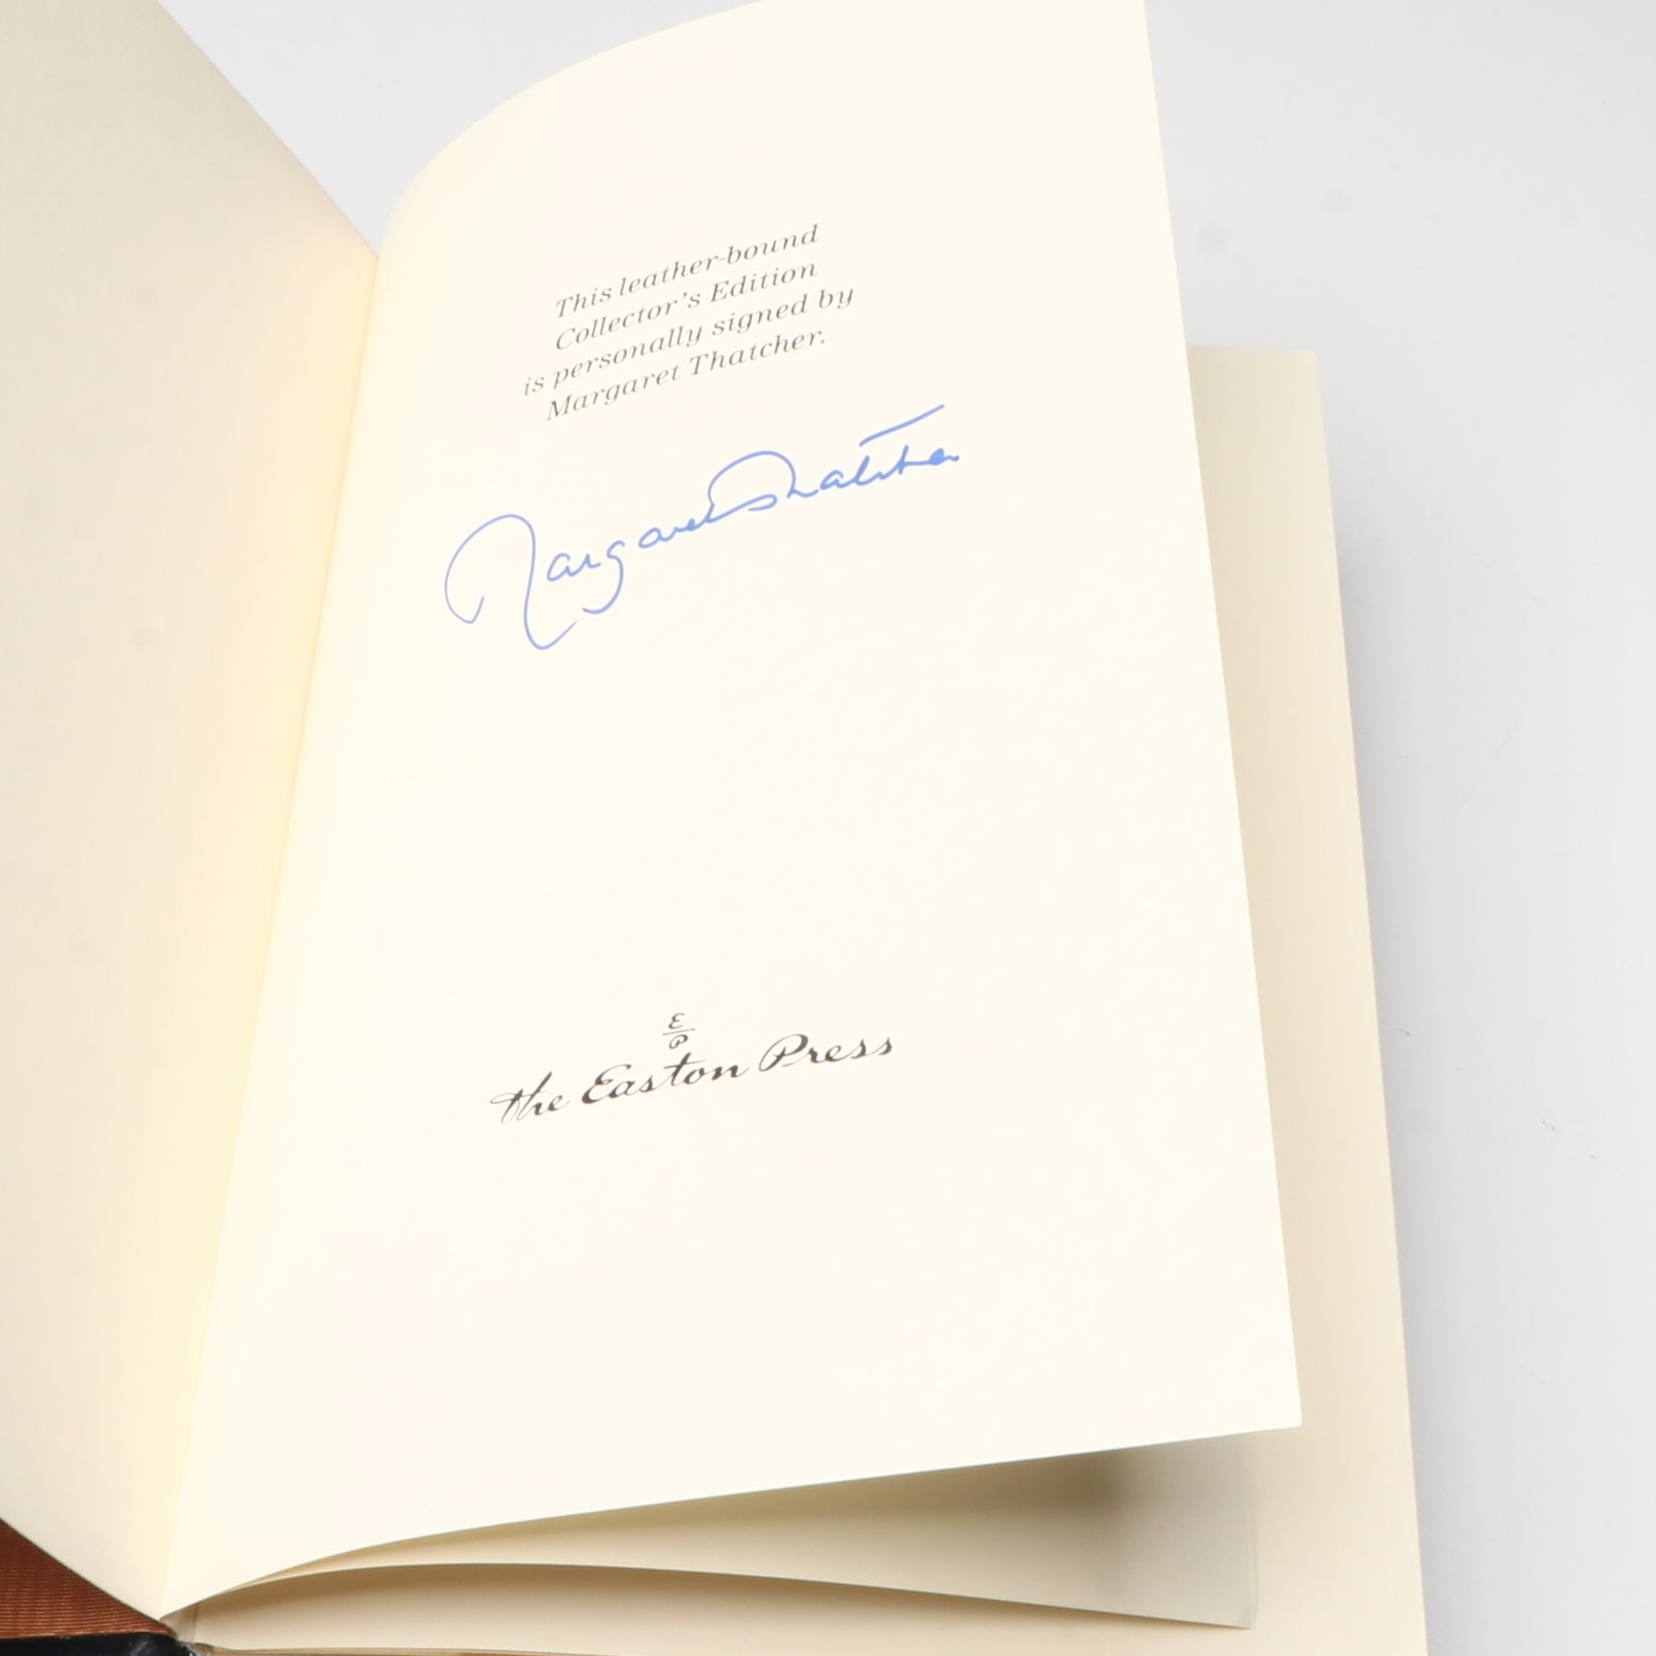 This leather-bound
Collector's Edition
is personally signed by
Margaret Thatcher.
Margaret Thatcher
E
P
The Easton Press